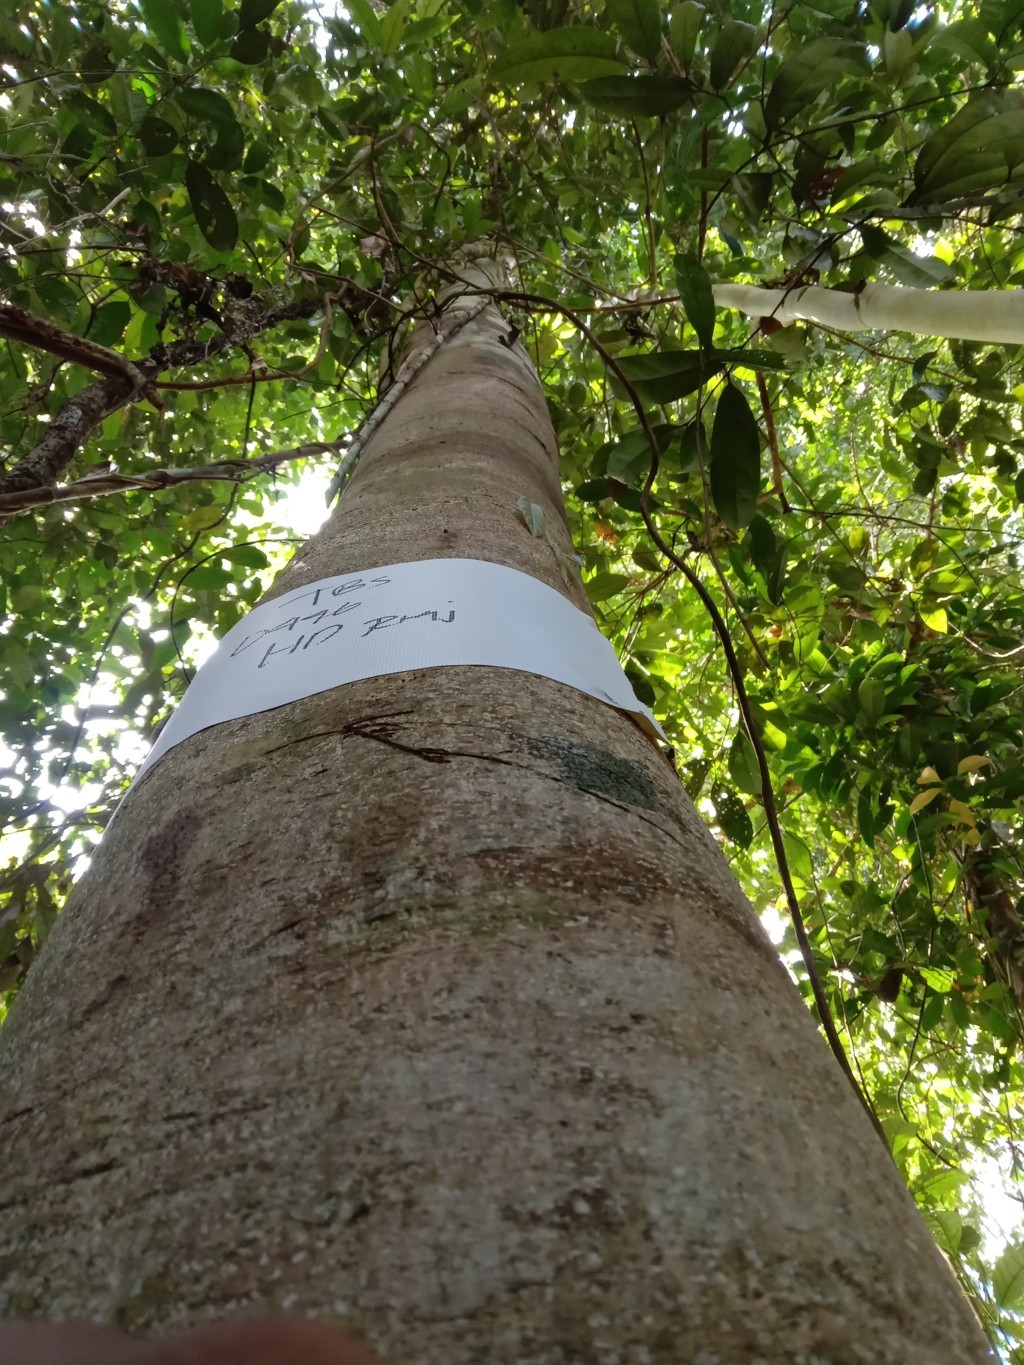 TBS
D446
HD RMj